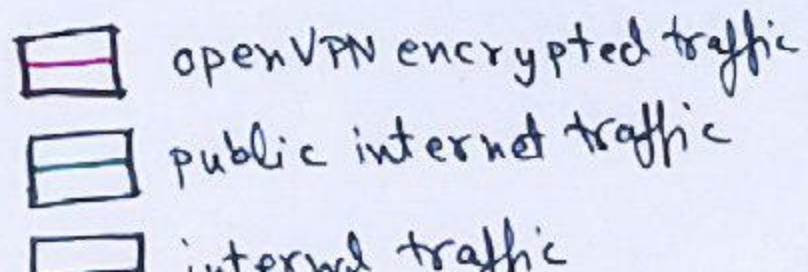 openVPN encrypted traffic
public internet traffic
internal traffic